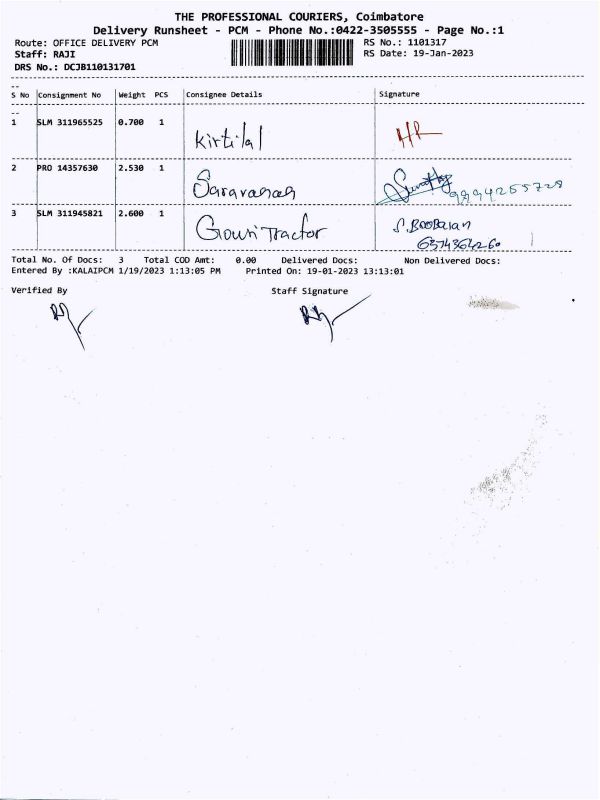 THE PROFESSIONAL COURIERS, Coimbatore
Delivery Runsheet - PCM - Phone No.:0422-3505555 - Page No.:1
Route: OFFICE DELIVERY PCM RS No.: 1101317
Staff: RAJI RS Date: 19-Jan-2023
DRS No.: DCJB110131701
S No Consignment No Weight PCS Consignee Details Signature
1 SLM 311965525 0.700 1 Kirtilal
2 PRO 14357630 2.530 1 Saravanan 9994255729
3 SLM 311945821 2.600 1 Gowri Tractor S. Boobalan
6374364260
Total No. Of Docs: 3 Total COD Amt: 0.00 Delivered Docs: Non Delivered Docs:
Entered By :KALAIPCM 1/19/2023 1:13:05 PM Printed On: 19-01-2023 13:13:01
Verified By Staff Signature